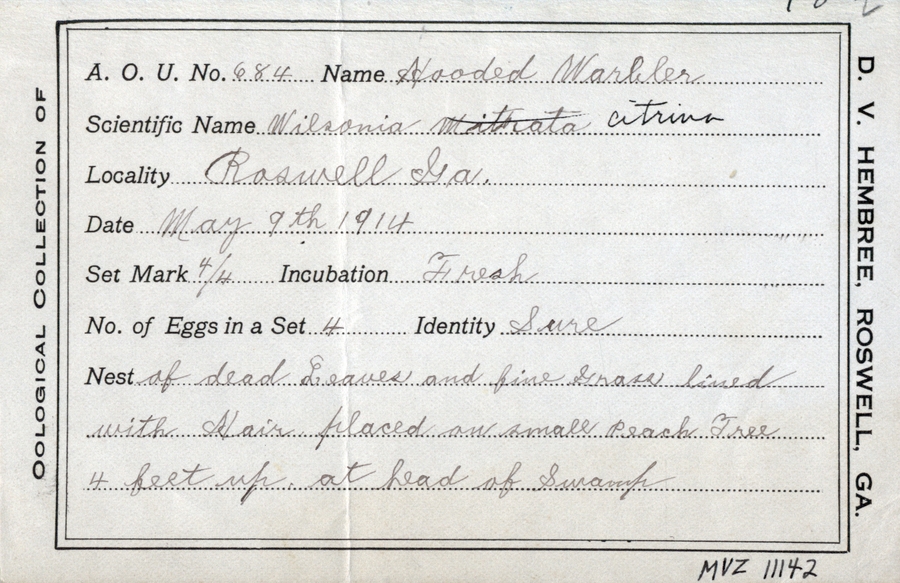 OOLOGICAL COLLECTION OF
D. V. HEMBREE, ROSWELL, GA.
A. O. U. No. 684 Name Hooded Warbler
Scientific Name Wilsonia mitrata citrina
Locality Roswell Ga.
Date May 9th 1914
Set Mark 4/4 Incubation Fresh
No. of Eggs in a Set 4 Identity Sure
Nest of dead Leaves and fine Grass lined
with Hair placed on small Peach Tree
4 feet up. at head of Swamp
MVZ 11142